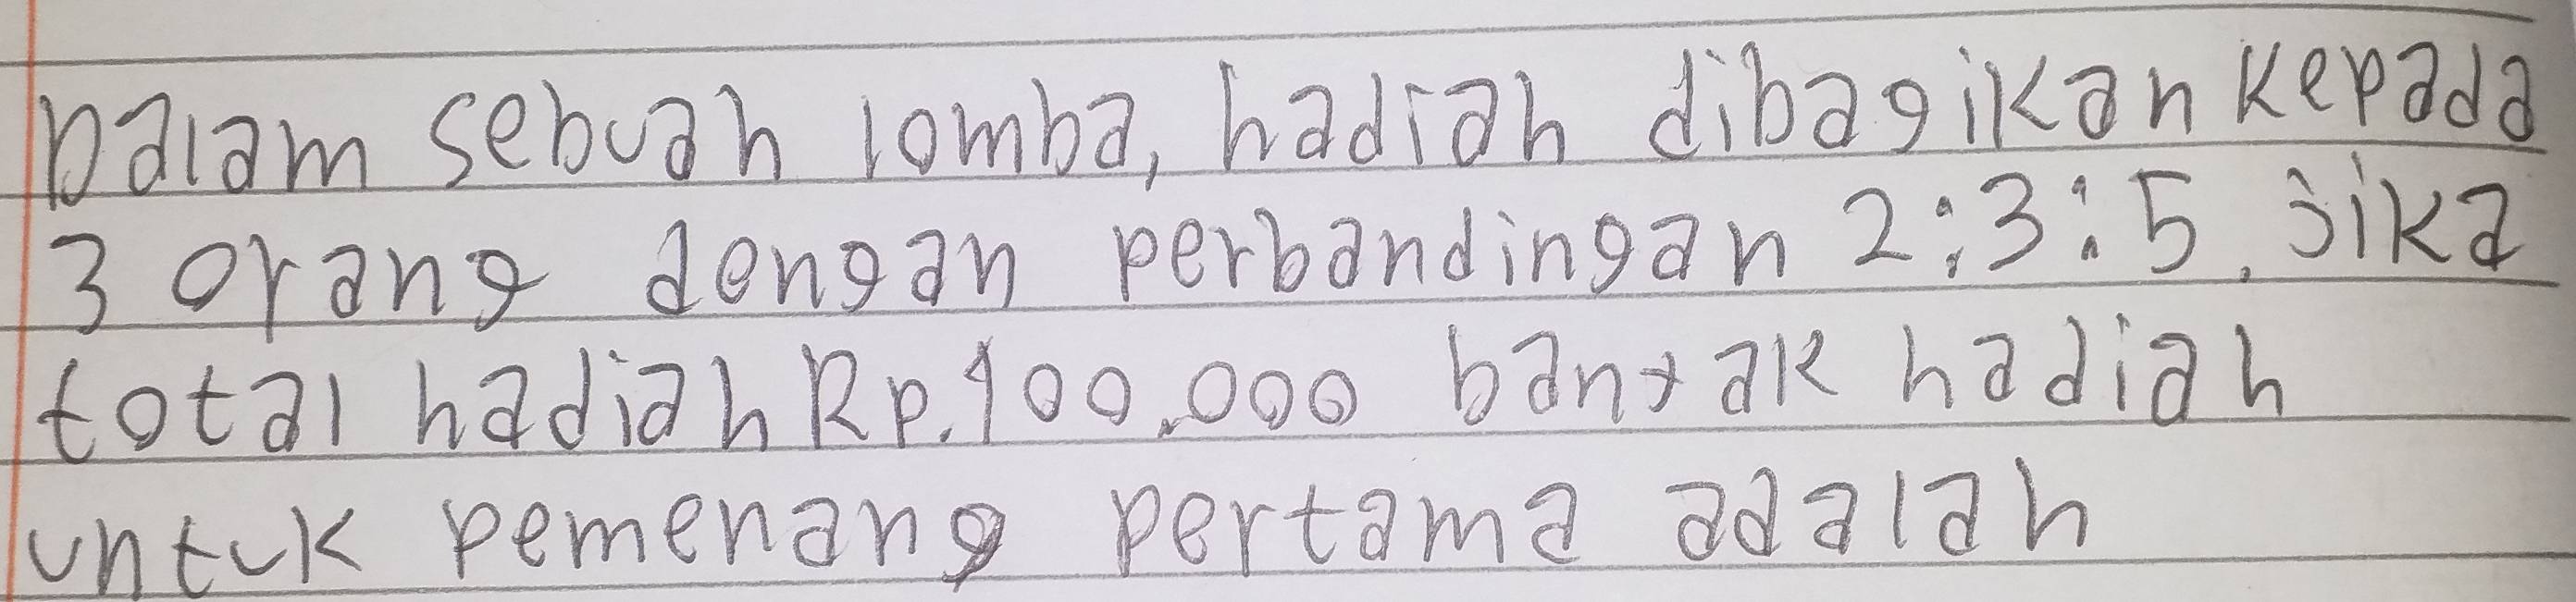 Dalam sebuah lomba, hadiah dibagikan kepada
3 orang dengan perbandingan 2:3:5. Jika
total hadiah Rp.100.000 banyak hadiah
untuk pemenang pertama adalah